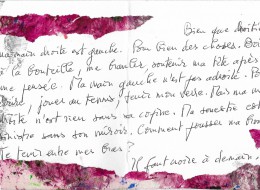 Bien que droitiè
ma main droite est gauche. Pour bien des choses. Boi
à la bouteille, me branler, soutenir ma tête après
une pensée. Ma main gauche n'est pas adroite. Po
jouer au tennis, tenir mon verre. Mais ma m
droite n'est rien sans sa copine. Ma senestre est
sinistre sans son miroir. Comment pousser ma bro
Te tenir entre mes bras ?
Il faut croire à demain.